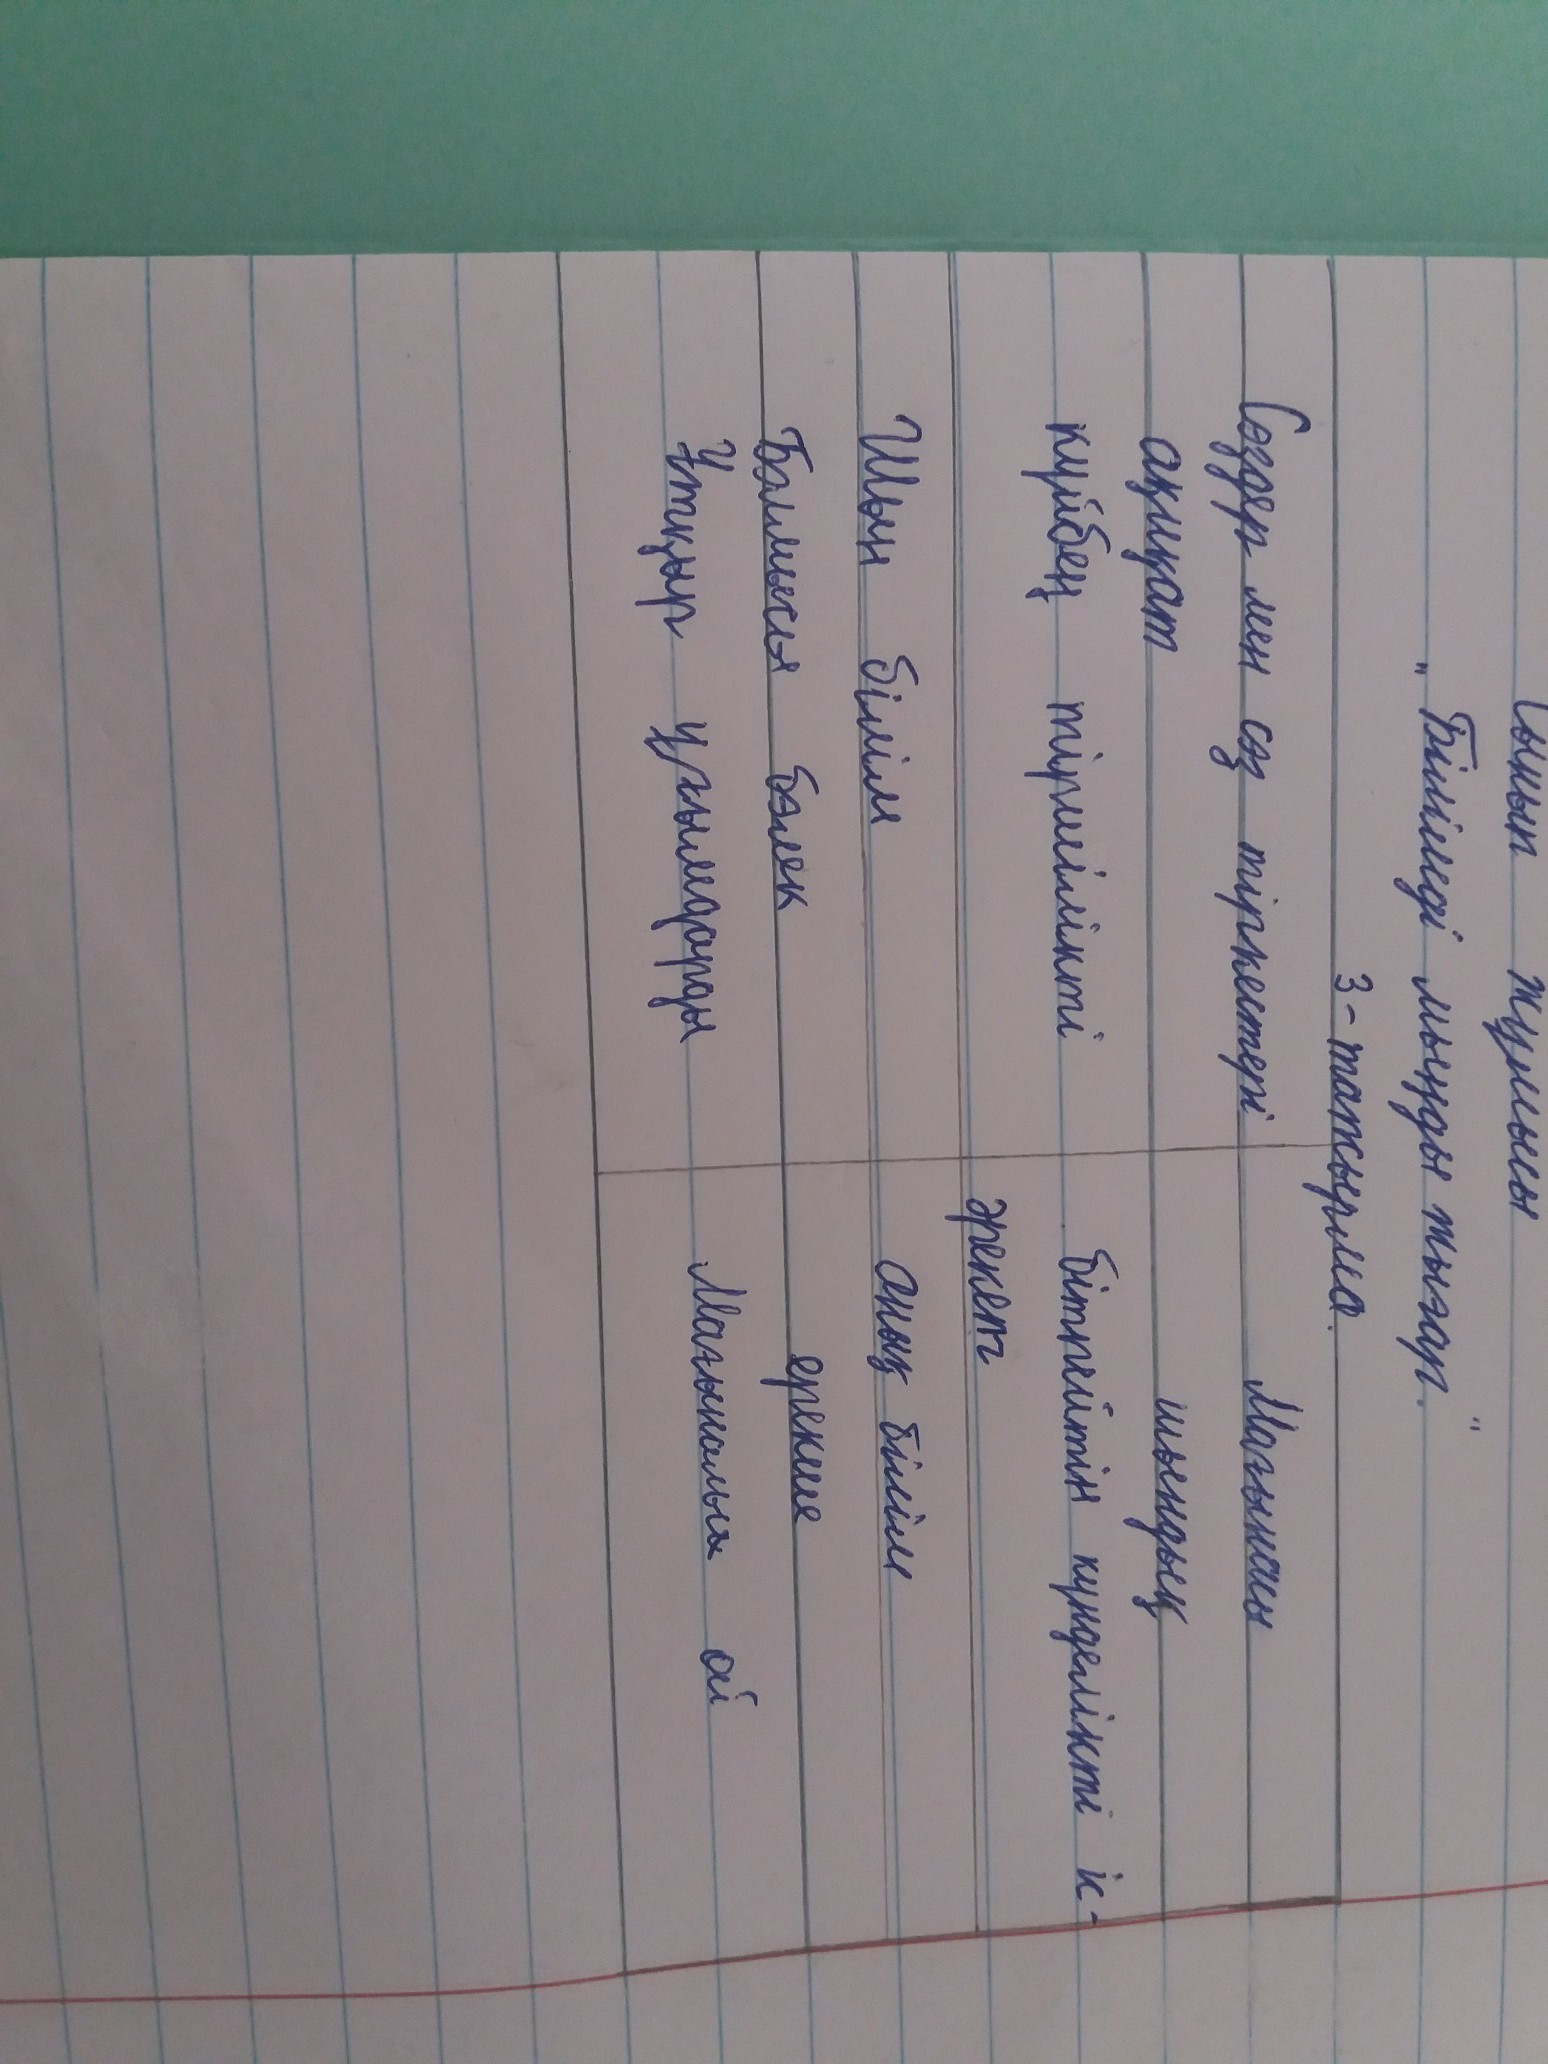 Сынып жұмысы
„Білімді мыңды жығар."
3-тапсырма.
Сөздер мен сөз тіркестері Мағынасы
ақиқат шындық
күйбең тіршілікті бітпейтін күнделікті іс-
әрекет
Шың білім анық білім
Болмысы бөлек ерекше
Ұтқыр ұғымдарды Мағыналы ой